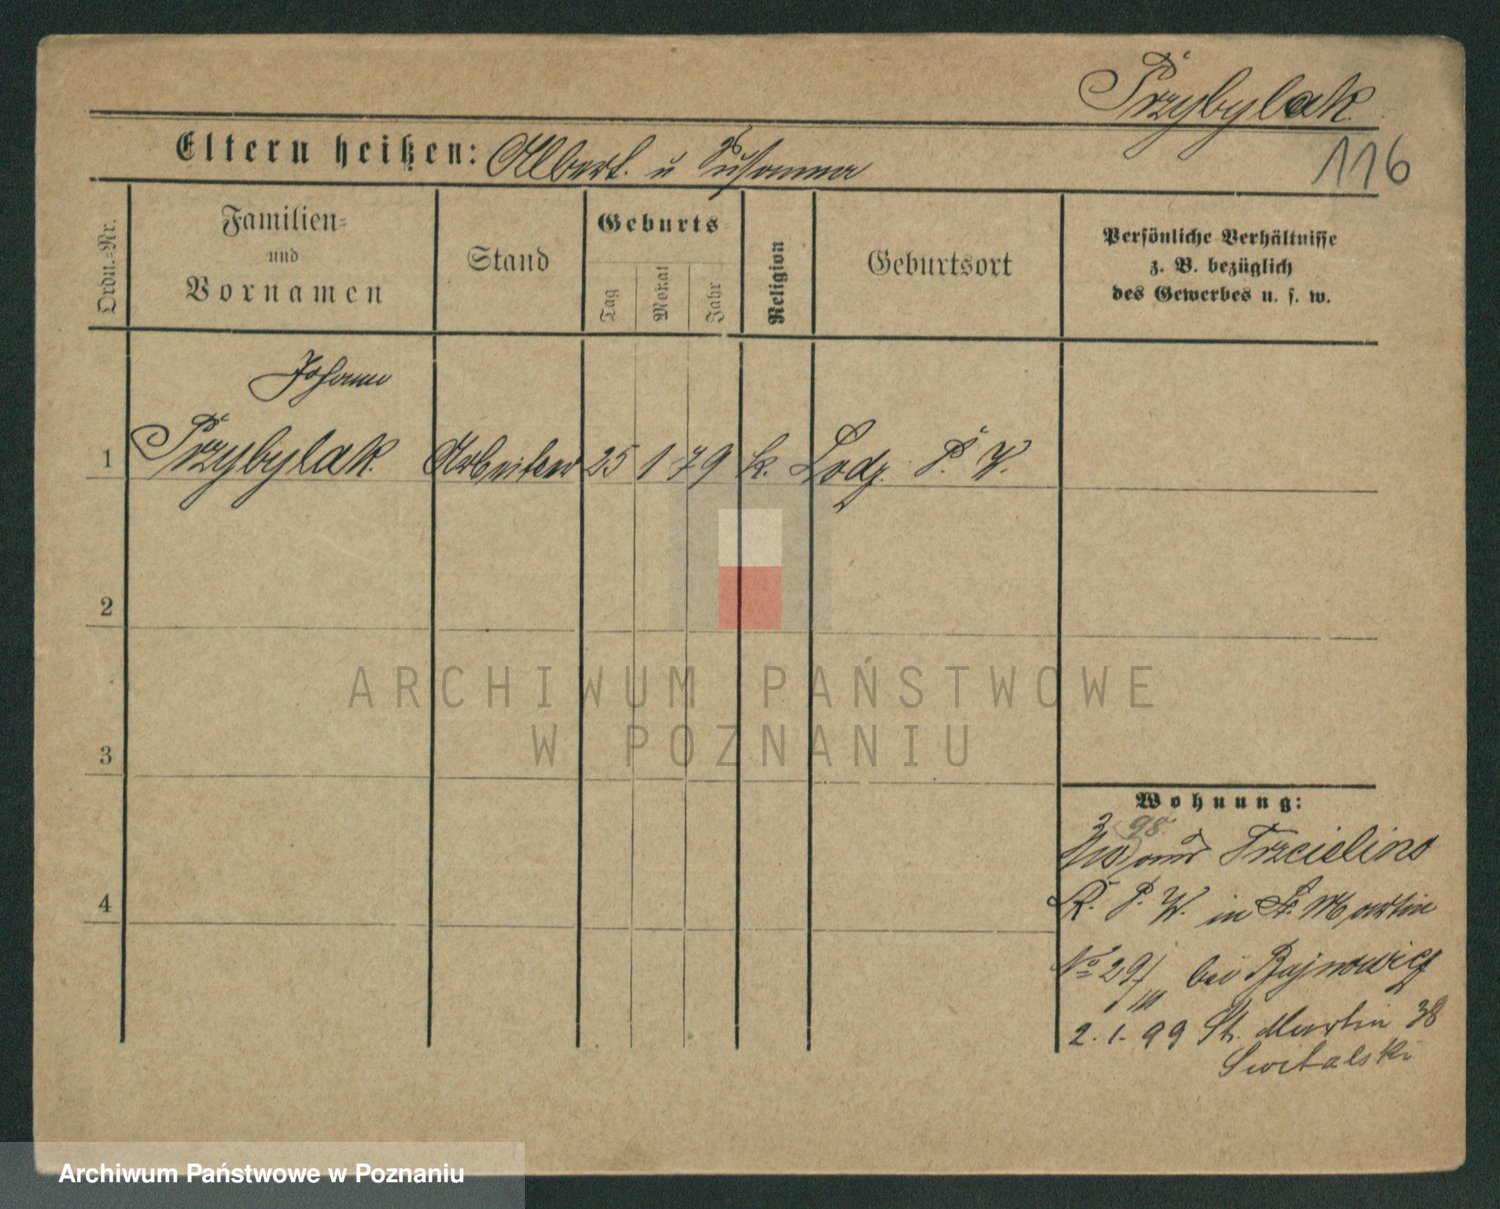 Przybylak
116
Eltern heißen: Albert u Susanna
Ordn.-Nr.
Familien- und Vornamen
Stand
Geburts
Tag
Monat
Jahr
Religion
Geburtsort
Persönliche Verhältnisse
z. B. bezüglich
des Gewerbes u. s. w.
Johann
1 Przybylak Arbeiter 25 1 79 k. Lodz P. W.
2
ARCHIWUM PAŃSTWOWE
W POZNANIU
3
Wohnung:
98 Trzcielino
K. P. W. in St. Martin
No 29/III bei
4
2. 1. 99 St. Martin 38
Switalski
Archiwum Państwowe w Poznaniu